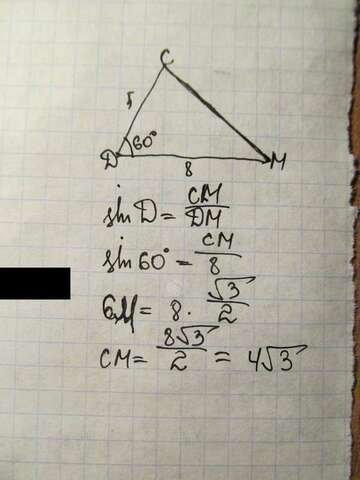 C
5
60°
D
8
M
sin D = CM/DM
sin 60° = CM/8
CM = 8 · √3/2
CM = 8√3/2 = 4√3